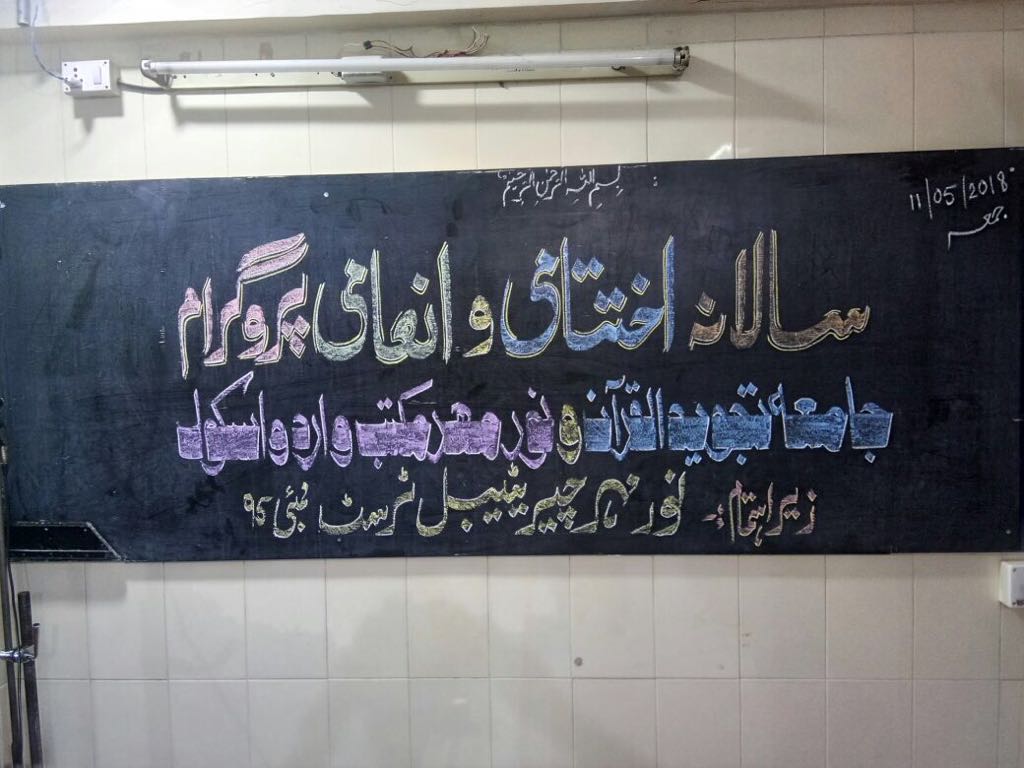 بسم اللہ الرحمٰن الرحیم
11/05/2018
جمعہ
سالانہ اختتامی و انعامی پروگرام
جامعہ تجوید القرآن و نور مہر مکتب و اردو اسکول
زیر اہتمام :۔ نور مہر چیریٹیبل ٹرسٹ ممبئی ۹۵